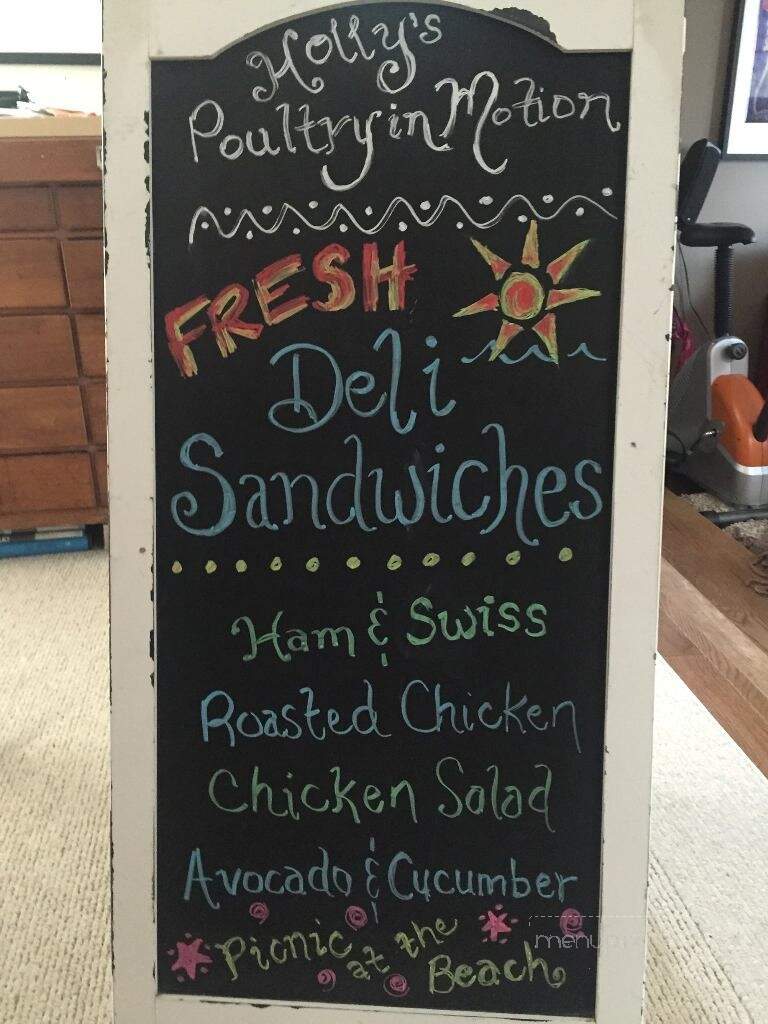 Holly's
Poultry in Motion
FRESH
Deli
Sandwiches
Ham & Swiss
Roasted Chicken
Chicken Salad
Avocado & Cucumber
Picnic at the Beach